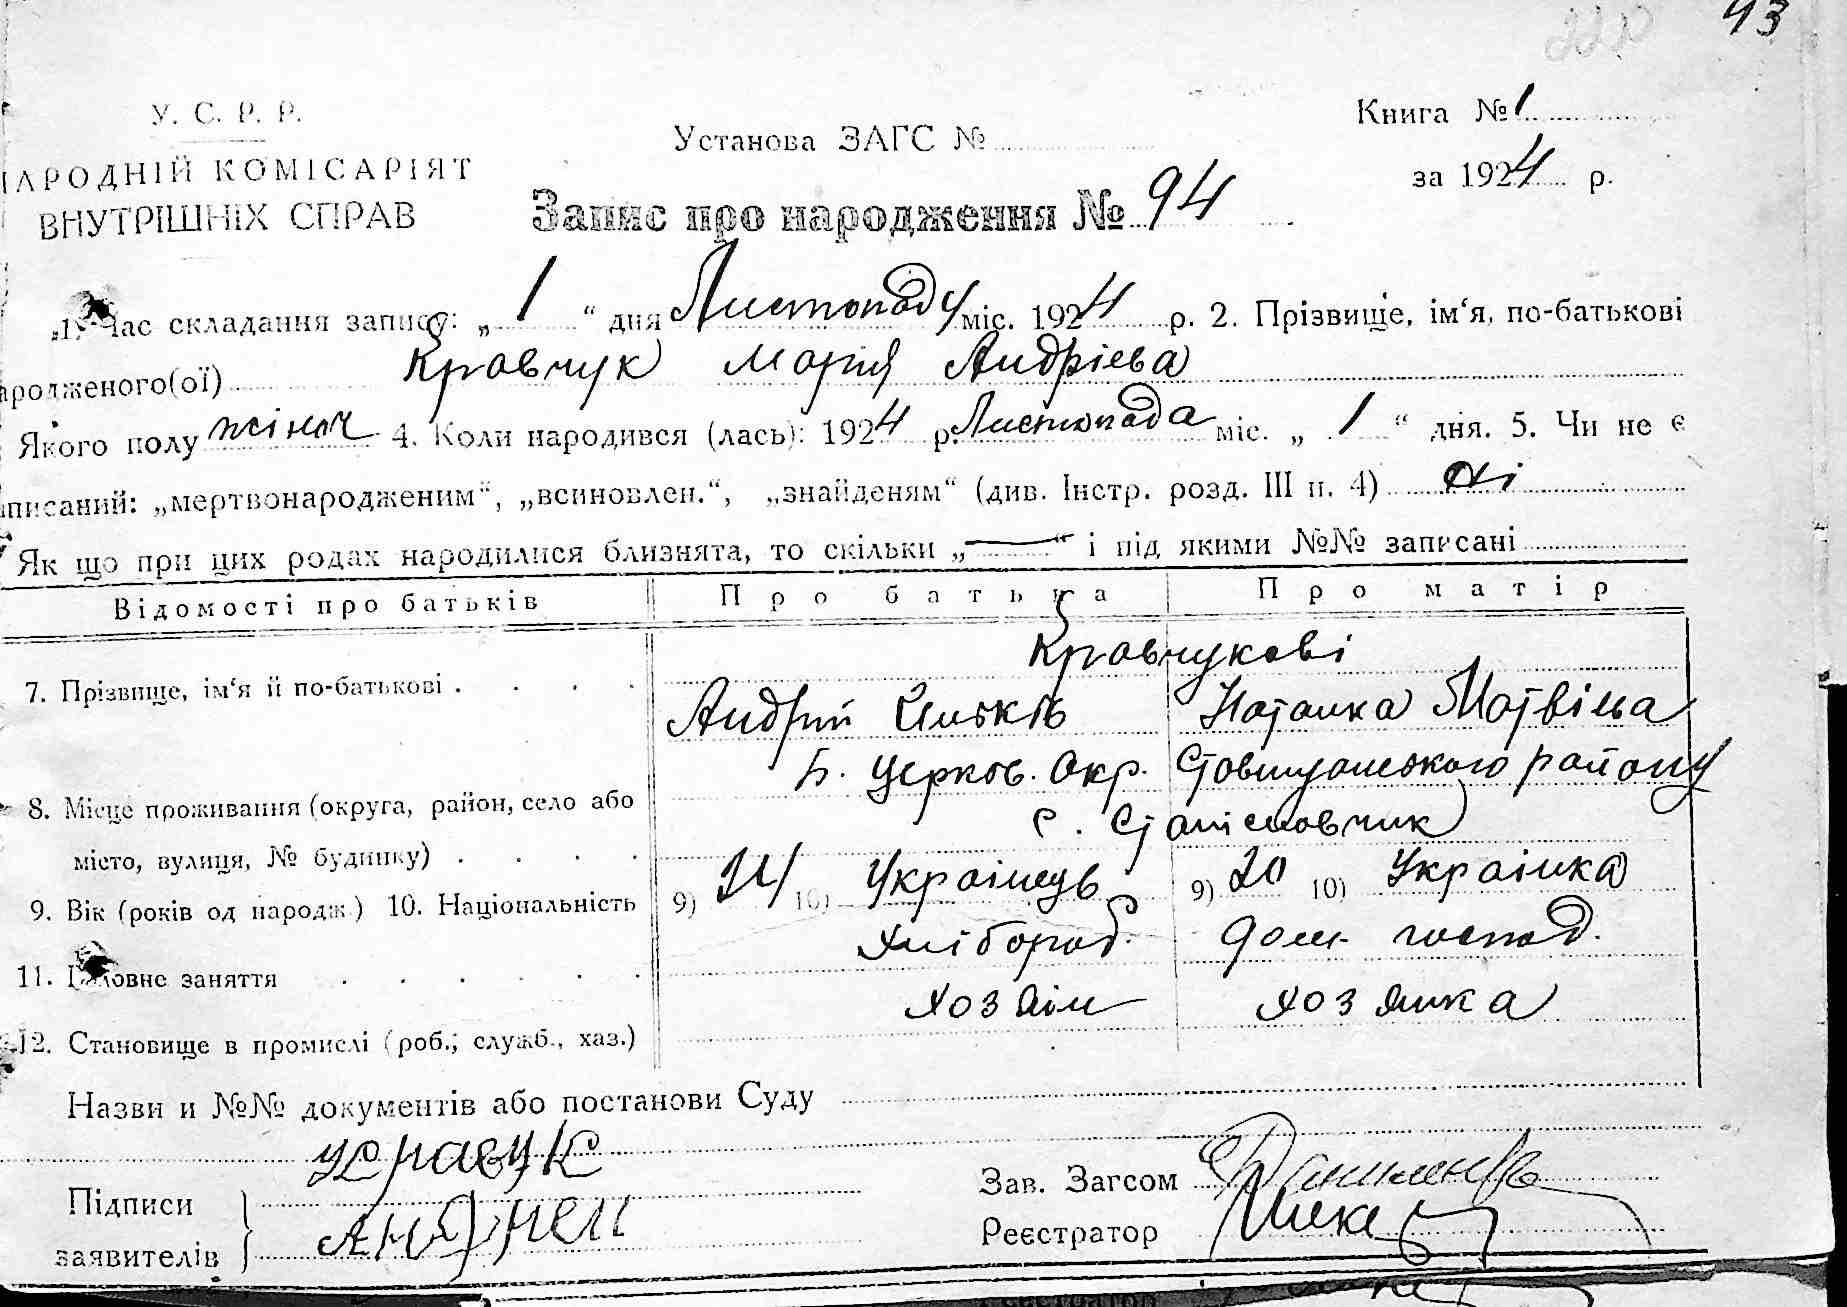 43
У. С. Р. Р.
Книга № 1
Установа ЗАГС №
НАРОДНІЙ КОМІСАРІЯТ
за 1924 р.
ВНУТРІШНІХ СПРАВ
Запис про народження № 94
1. Час складання запису: „ 1 “ дня Листопаду міс. 1924 р. 2. Прізвище, ім‘я, по-батькові
ародженого(ої) Кравчук Марія Андрієва
Якого полу жіноч 4. Коли народився (лась): 1924 р. Листопада міс. „ 1 “ дня. 5. Чи не є
писаний: „мертвонародженим“, „всиновлен.“, „знайденям“ (див. Інстр. розд. III п. 4) ні
Як що при цих родах народилися близнята, то скільки „—“ і під якими №№ записані
Відомості про батьків Про батька Про матір
Кравчукові
7. Прізвище, ім‘я й по-батькові . . . .
Андрій Яльків Наталка Матвієва
Б. Церков. Окр. Ставищанського району
8. Місце проживання (округа, район, село або
с. Станіславчик
місто, вулиця, № будинку) . . . .
9. Вік (років од народж.) 10. Національність 9) 24 10) Українець 9) 20 10) Українка
хлібороб. дом. господ.
11. Головне заняття . . . . .
хозяїн хозяйка
12. Становище в промислі (роб.; служб., хаз.)
Назви и №№ документів або постанови Суду
Кравчук
Зав. Загсом
Підписи
Андрией
Реєстратор
заявителів
Реєстратор